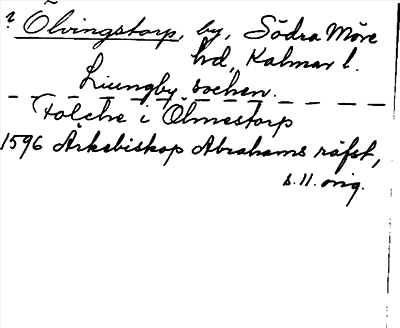 ? Ölvingstorp, by, Södra Möre
hd, Kalmar l.
Ljungby socken.
Folche i Ölmestorp
1596 Ärkebiskop Abrahams räfst,
s. 11. orig.